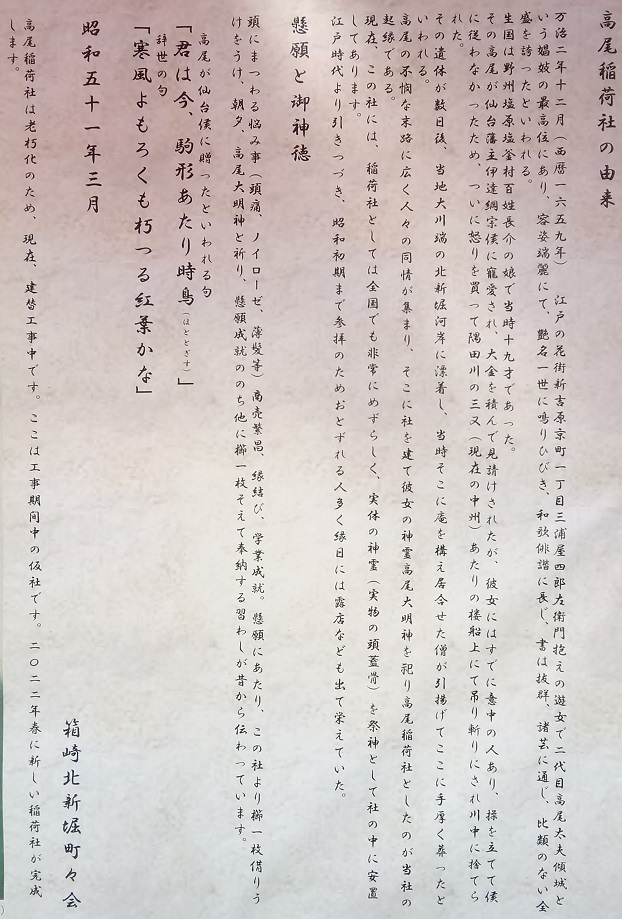 高尾稲荷社の由来
万治二年十二月（西暦一六五九年）　江戸の花街新吉原京町一丁目三浦屋四郎左衛門抱えの遊女で二代目高尾太夫傾城と
いう娼妓の最高位にあり、容姿端麗にて、艶名一世に鳴りひびき、和歌俳諧に長じ、書は抜群、諸芸に通じ、比類のない全
盛を誇ったといわれる。
生国は野州塩原塩釜村百姓長介の娘で当時十九才であった。
その高尾が仙台藩主伊達綱宗侯に寵愛され、大金を積んで見請けされたが、彼女にはすでに意中の人あり、操を立てて侯
に従わなかったため、ついに怒りを買って隅田川の三又（現在の中州）あたりの楼船上にて吊り斬りにされ川中に捨てら
れた。
その遺体が数日後、当地大川端の北新堀河岸に漂着し、当時そこに庵を構え居合せた僧が引揚げてここに手厚く葬ったと
いわれる。
高尾の不憫な末路に広く人々の同情が集まり、そこに社を建て彼女の神霊高尾大明神を祀り高尾稲荷社としたのが当社の
起縁である。
現在、この社には、稲荷社としては全国でも非常にめずらしく、実体の神霊（実物の頭蓋骨）を祭神として社の中に安置
してあります。
江戸時代より引きつづき、昭和初期まで参拝のためおとずれる人多く縁日には露店なども出て栄えていた。
懸願と御神徳
頭にまつわる悩み事（頭痛、ノイローゼ、薄髪等）商売繁昌、縁結び、学業成就。懸願にあたり、この社より櫛一枚借りう
けをうけ、朝夕、高尾大明神と祈り、懸願成就ののち他に櫛一枚そえて奉納する習わしが昔から伝わっています。
高尾が仙台侯に贈ったといわれる句
「君は今、駒形あたり時鳥（ほととぎす）」
辞世の句
「寒風よもろくも朽つる紅葉かな」
昭和五十一年三月
箱崎北新堀町々会
高尾稲荷社は老朽化のため、現在、建替工事中です。ここは工事期間中の仮社です。二〇二二年春に新しい稲荷社が完成
します。